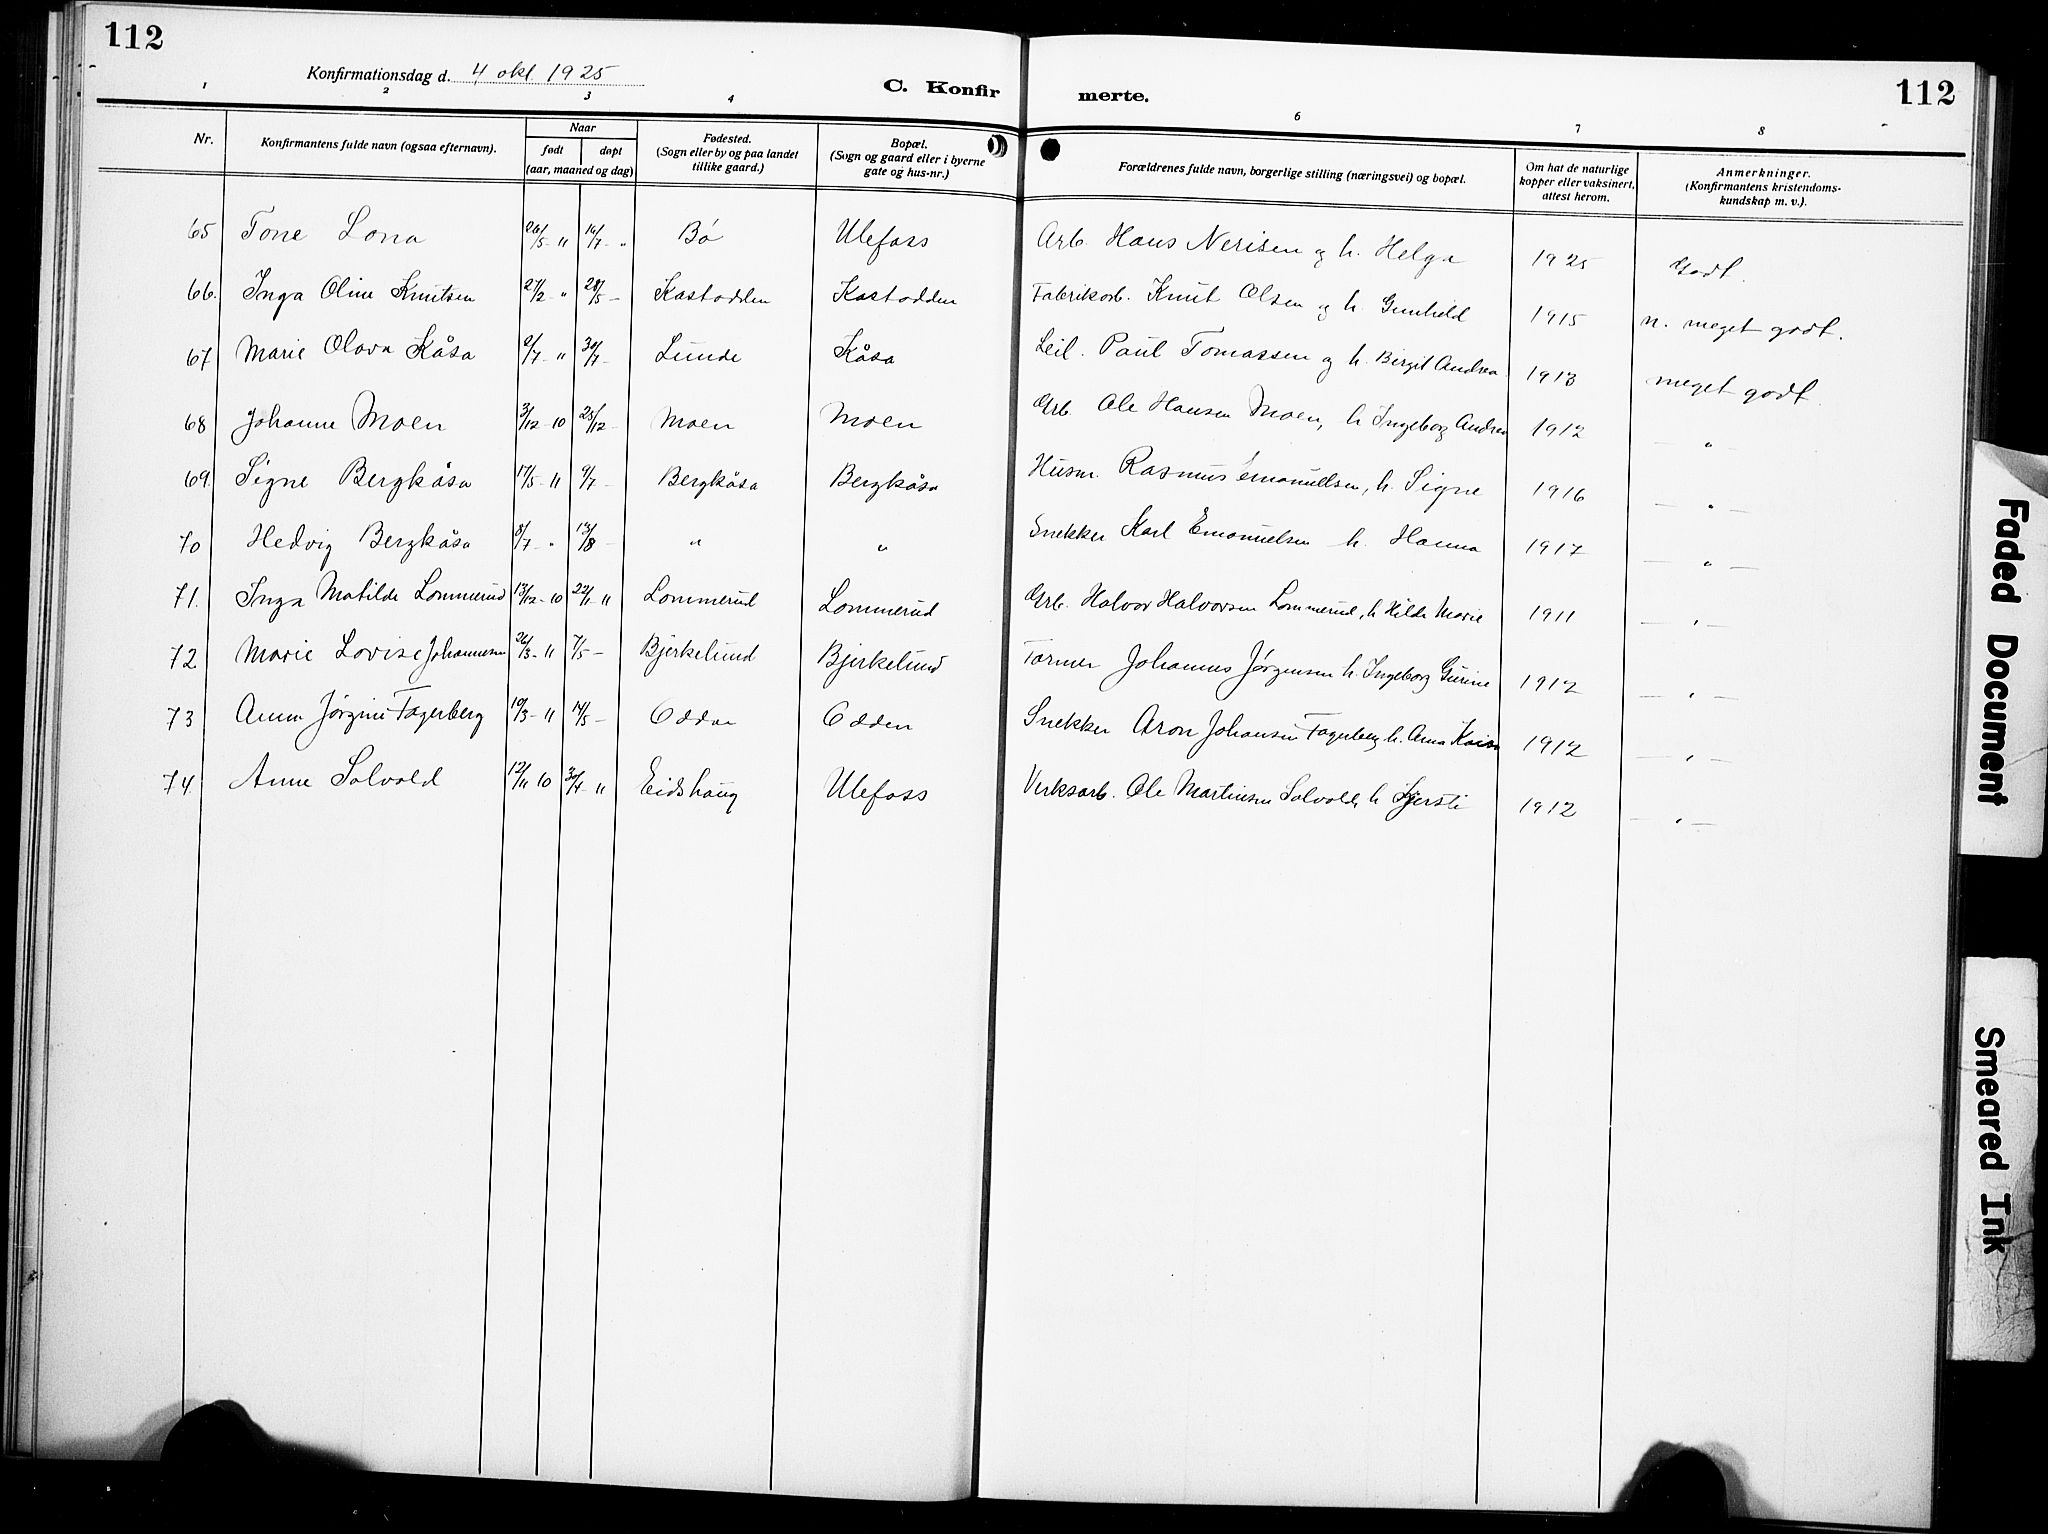 112
Konfirmationsdag d. 4 okt. 1925
C. Konfirmerte.
112
1 2 3 4 6 7 8
Nr.
Konfirmantens fulde navn (ogsaa efternavn).
Naar
født
døpt
(aar, maaned og dag)
Fødested.
(Sogn eller by og paa landet
tillike gaard.)
Bopæl.
(Sogn og gaard eller i byerne
gate og hus-nr.)
Forældrenes fulde navn, borgerlige stilling (næringsvei) og bopæl.
Om hat de naturlige
kopper eller vaksinert,
attest herom.
Anmerkninger.
(Konfirmantens kristendoms-
kundskap m. v.).
65 Tone Lona 26/5 - 11 16/7 - " Bø Ulefoss Arb. Hans Nerisen og h. Helga 1925 Godt.
66. Inga Oline Knutsen 27/2 - " 28/5 - Kastodden Kastodden Fabrikarb. Knut Olsen og h. Gunhild 1915 n. meget godt.
67 Marie Olava Kåsa 2/7 - 11 30/7 - Lunde Kåsa Leil. Paul Tomassen og h. Birgit Andrea 1913 meget godt
68 Johanne Moen 3/12 - 10 25/12 - Moen Moen Arb. Ole Hansen Moen, h Ingeborg Andrea 1912 — " —
69. Signe Bergkåsa 17/5 - 11 9/7 - Bergkåsa Bergkåsa Husm. Rasmus Emanuelsen, h. Signe 1916 — " —
70 Hedvig Bergkåsa 8/7 - " 13/8 - " " Snekker Karl Emanuelsen h. Hanna 1917 — " —
71. Inga Matilde Lommerud 13/12 - 10 22/1 - 11 Lommerud Lommerud Arb. Halvor Halvorsen Lommerud, h Hilda Marie 1911 — " —
72 Marie Lovise Johannesen 26/3 - 11 7/5 - Bjerkelund Bjerkelund Former Johannes Jørgensen h. Ingeborg Gurine 1912 — " —
73 Anna Jørgine Fagerberg 19/3 - 11 14/5 - Odden Odden Snekker Aron Johansen Fagerberg h. Anna Karin 1912 — " —
74. Anne Solvold 12/11 10 30/4 11 Eidshaug Ulefoss Verksarb. Ole Martinsen Solvold, h Kjersti 1912 — " —
Faded Document
Smeared Ink